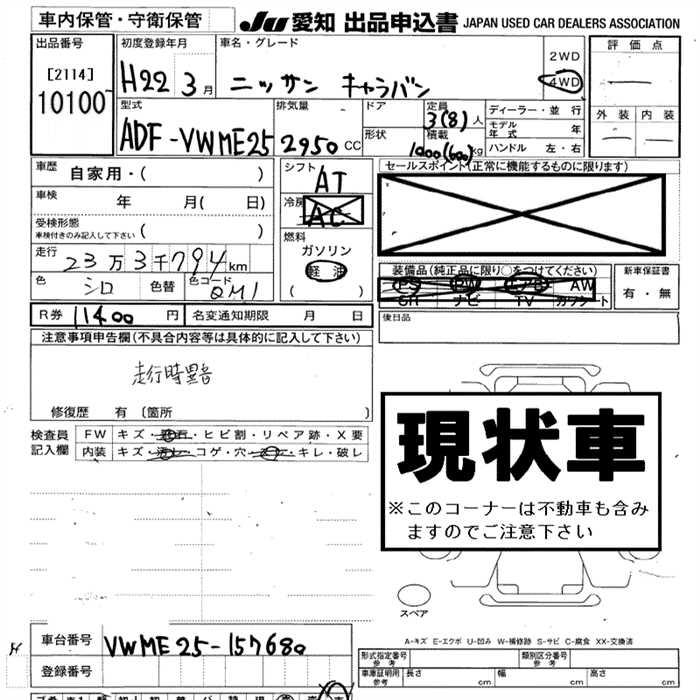 車内保管・守衛保管
JU 愛知 出品申込書 JAPAN USED CAR DEALERS ASSOCIATION
出品番号
[2114]
10100
初度登録年月
H22 3月
車名・グレード
ニッサン キャラバン
2WD
4WD
評価点
外装 内装
型式
ADF-VWME25
排気量
2950cc
ドア
形状
定員
3(8)人
積載
1000(600)kg
ディーラー・並行
モデル年式 年
ハンドル 左・右
車歴 自家用・( )
車検 年 月( 日)
受検形態
車検付きのみ記入して下さい ( )
走行 23万3千794km
色 シロ 色替 色コード QM1
シフト AT
冷房 AC
燃料
ガソリン
軽油
( )
セールスポイント(正常に機能するものに限ります)
装備品(純正品に限り○をつけてください)
PS PW エアB AW
SR ナビ TV カワシート
新車保証書
有・無
R券 11400円 名変通知期限 月 日
後日品
注意事項申告欄(不具合内容等は具体的に記入して下さい)
走行時異音
修復歴 有 〔箇所 〕
検査員
記入欄
FW キズ・飛石・ヒビ割・リペア跡・X要
内装 キズ・汚れ・コゲ・穴・ ・キレ・破レ
現状車
※このコーナーは不動車も含み
ますのでご注意下さい
スペア
A-キズ E-エクボ U-凹み W-補修跡 S-サビ C-腐食 XX-交換済
車台番号 VWME25-157680
登録番号
型式指定番号
参考
類別区分番号
参考
車庫証明用
参考
長さ cm 幅 cm 高さ cm